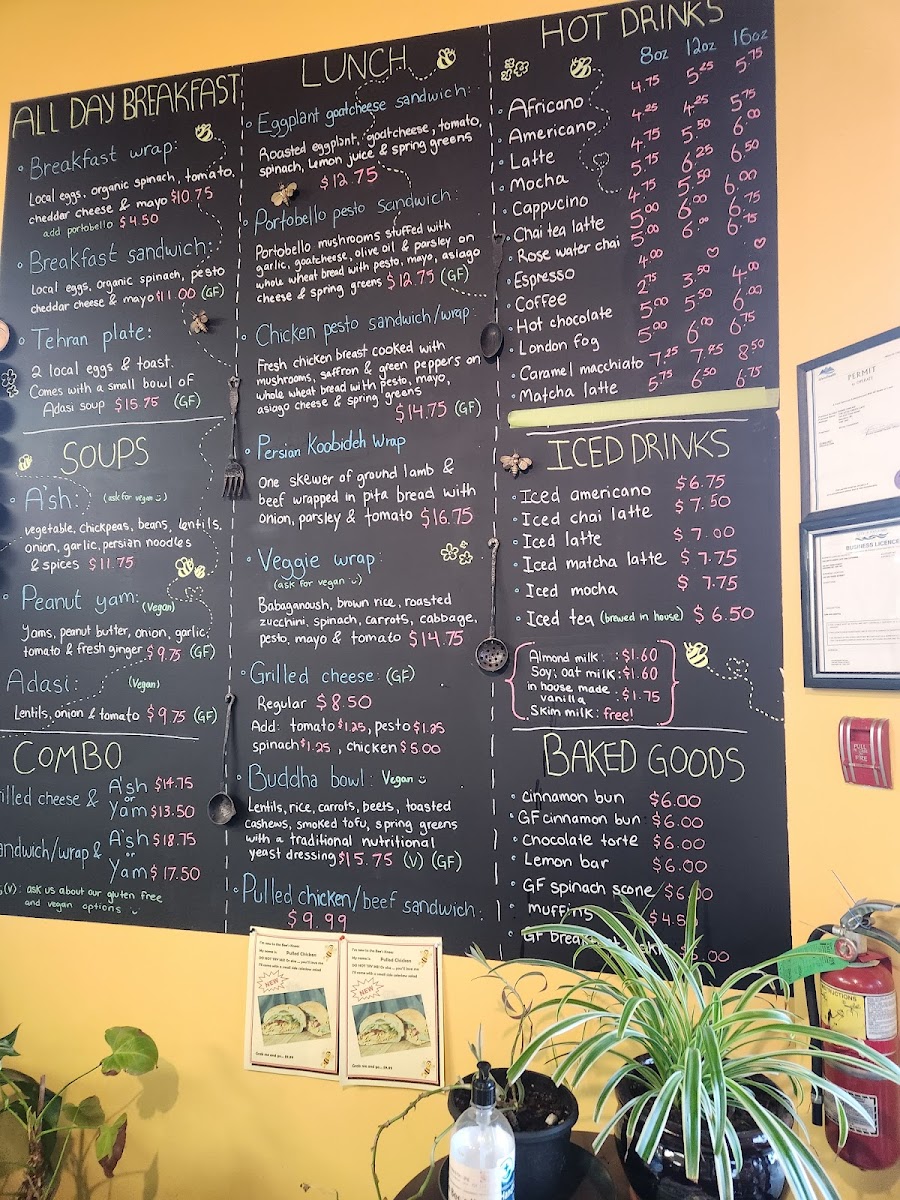 ALL DAY BREAKFAST
Breakfast wrap:
Local eggs, organic spinach, tomato,
cheddar cheese & mayo $10.75
add portobello $4.50
Breakfast sandwich:
Local eggs, organic spinach, pesto
cheddar cheese & mayo $11.00 (GF)
Tehran plate:
2 local eggs & toast.
Comes with a small bowl of
Adasi soup $15.75 (GF)
SOUPS
A'sh: (ask for vegan)
vegetable, chickpeas, beans, lentils,
onion, garlic, persian noodles
& spices $11.75
Peanut yam: (Vegan)
Yams, peanut butter, onion, garlic,
tomato & fresh ginger $9.75 (GF)
Adasi: (Vegan)
Lentils, onion & tomato $9.75 (GF)
COMBO
illed cheese & A'sh $14.75
or
Yam $13.50
andwich/wrap & A'sh $18.75
or
Yam $17.50
(V): ask us about our gluten free
and vegan options
LUNCH
Eggplant goatcheese sandwich:
Roasted eggplant, goatcheese, tomato,
spinach, lemon juice & spring greens
$12.75
Portobello pesto sandwich:
Portobello mushrooms stuffed with
garlic, goatcheese, olive oil & parsley on
whole wheat bread with pesto, mayo, asiago
cheese & spring greens $12.75 (GF)
Chicken pesto sandwich/wrap:
Fresh chicken breast cooked with
mushrooms, saffron & green peppers on
whole wheat bread with pesto, mayo,
asiago cheese & spring greens
$14.75 (GF)
Persian Koobideh Wrap
One skewer of ground lamb &
beef wrapped in pita bread with
onion, parsley & tomato $16.75
Veggie wrap:
(ask for vegan)
Babaganoush, brown rice, roasted
zucchini, spinach, carrots, cabbage,
pesto, mayo & tomato $14.75
Grilled cheese: (GF)
Regular $8.50
Add: tomato $1.25, pesto $1.25
spinach $1.25, chicken $5.00
Buddha bowl: Vegan
Lentils, rice, carrots, beets, toasted
cashews, smoked tofu, spring greens
with a traditional nutritional
yeast dressing $15.75 (V) (GF)
Pulled chicken/beef sandwich:
$9.99
HOT DRINKS
8oz 12oz 16oz
Africano 4.75 5.25 5.75
Americano 4.25 4.25 5.75
Latte 4.75 5.50 6.00
Mocha 5.15 6.25 6.50
Cappucino 4.75 5.50 6.00
Chai tea latte 5.00 6.00 6.75
Rose water chai 5.00 6.00 6.75
Espresso 4.00 ♡ ♡
Coffee 2.75 3.50 4.00
Hot chocolate 5.00 5.50 6.00
London fog 5.00 6.00 6.75
Caramel macchiato 7.25 7.95 8.50
Matcha latte 5.75 6.50 6.75
ICED DRINKS
Iced americano $6.75
Iced chai latte $7.50
Iced latte $7.00
Iced matcha latte $7.75
Iced mocha $7.75
Iced tea (brewed in house) $6.50
Almond milk: $1.60
Soy, oat milk: $1.60
in house made
vanilla: $1.75
Skim milk: free!
BAKED GOODS
cinnamon bun $6.00
GF cinnamon bun $6.00
Chocolate torte $6.00
Lemon bar $6.00
GF spinach scone $6.00
muffins $4.5
GF
PERMIT
BUSINESS LICENCE
Pulled Chicken
NEW
Pulled Chicken
NEW